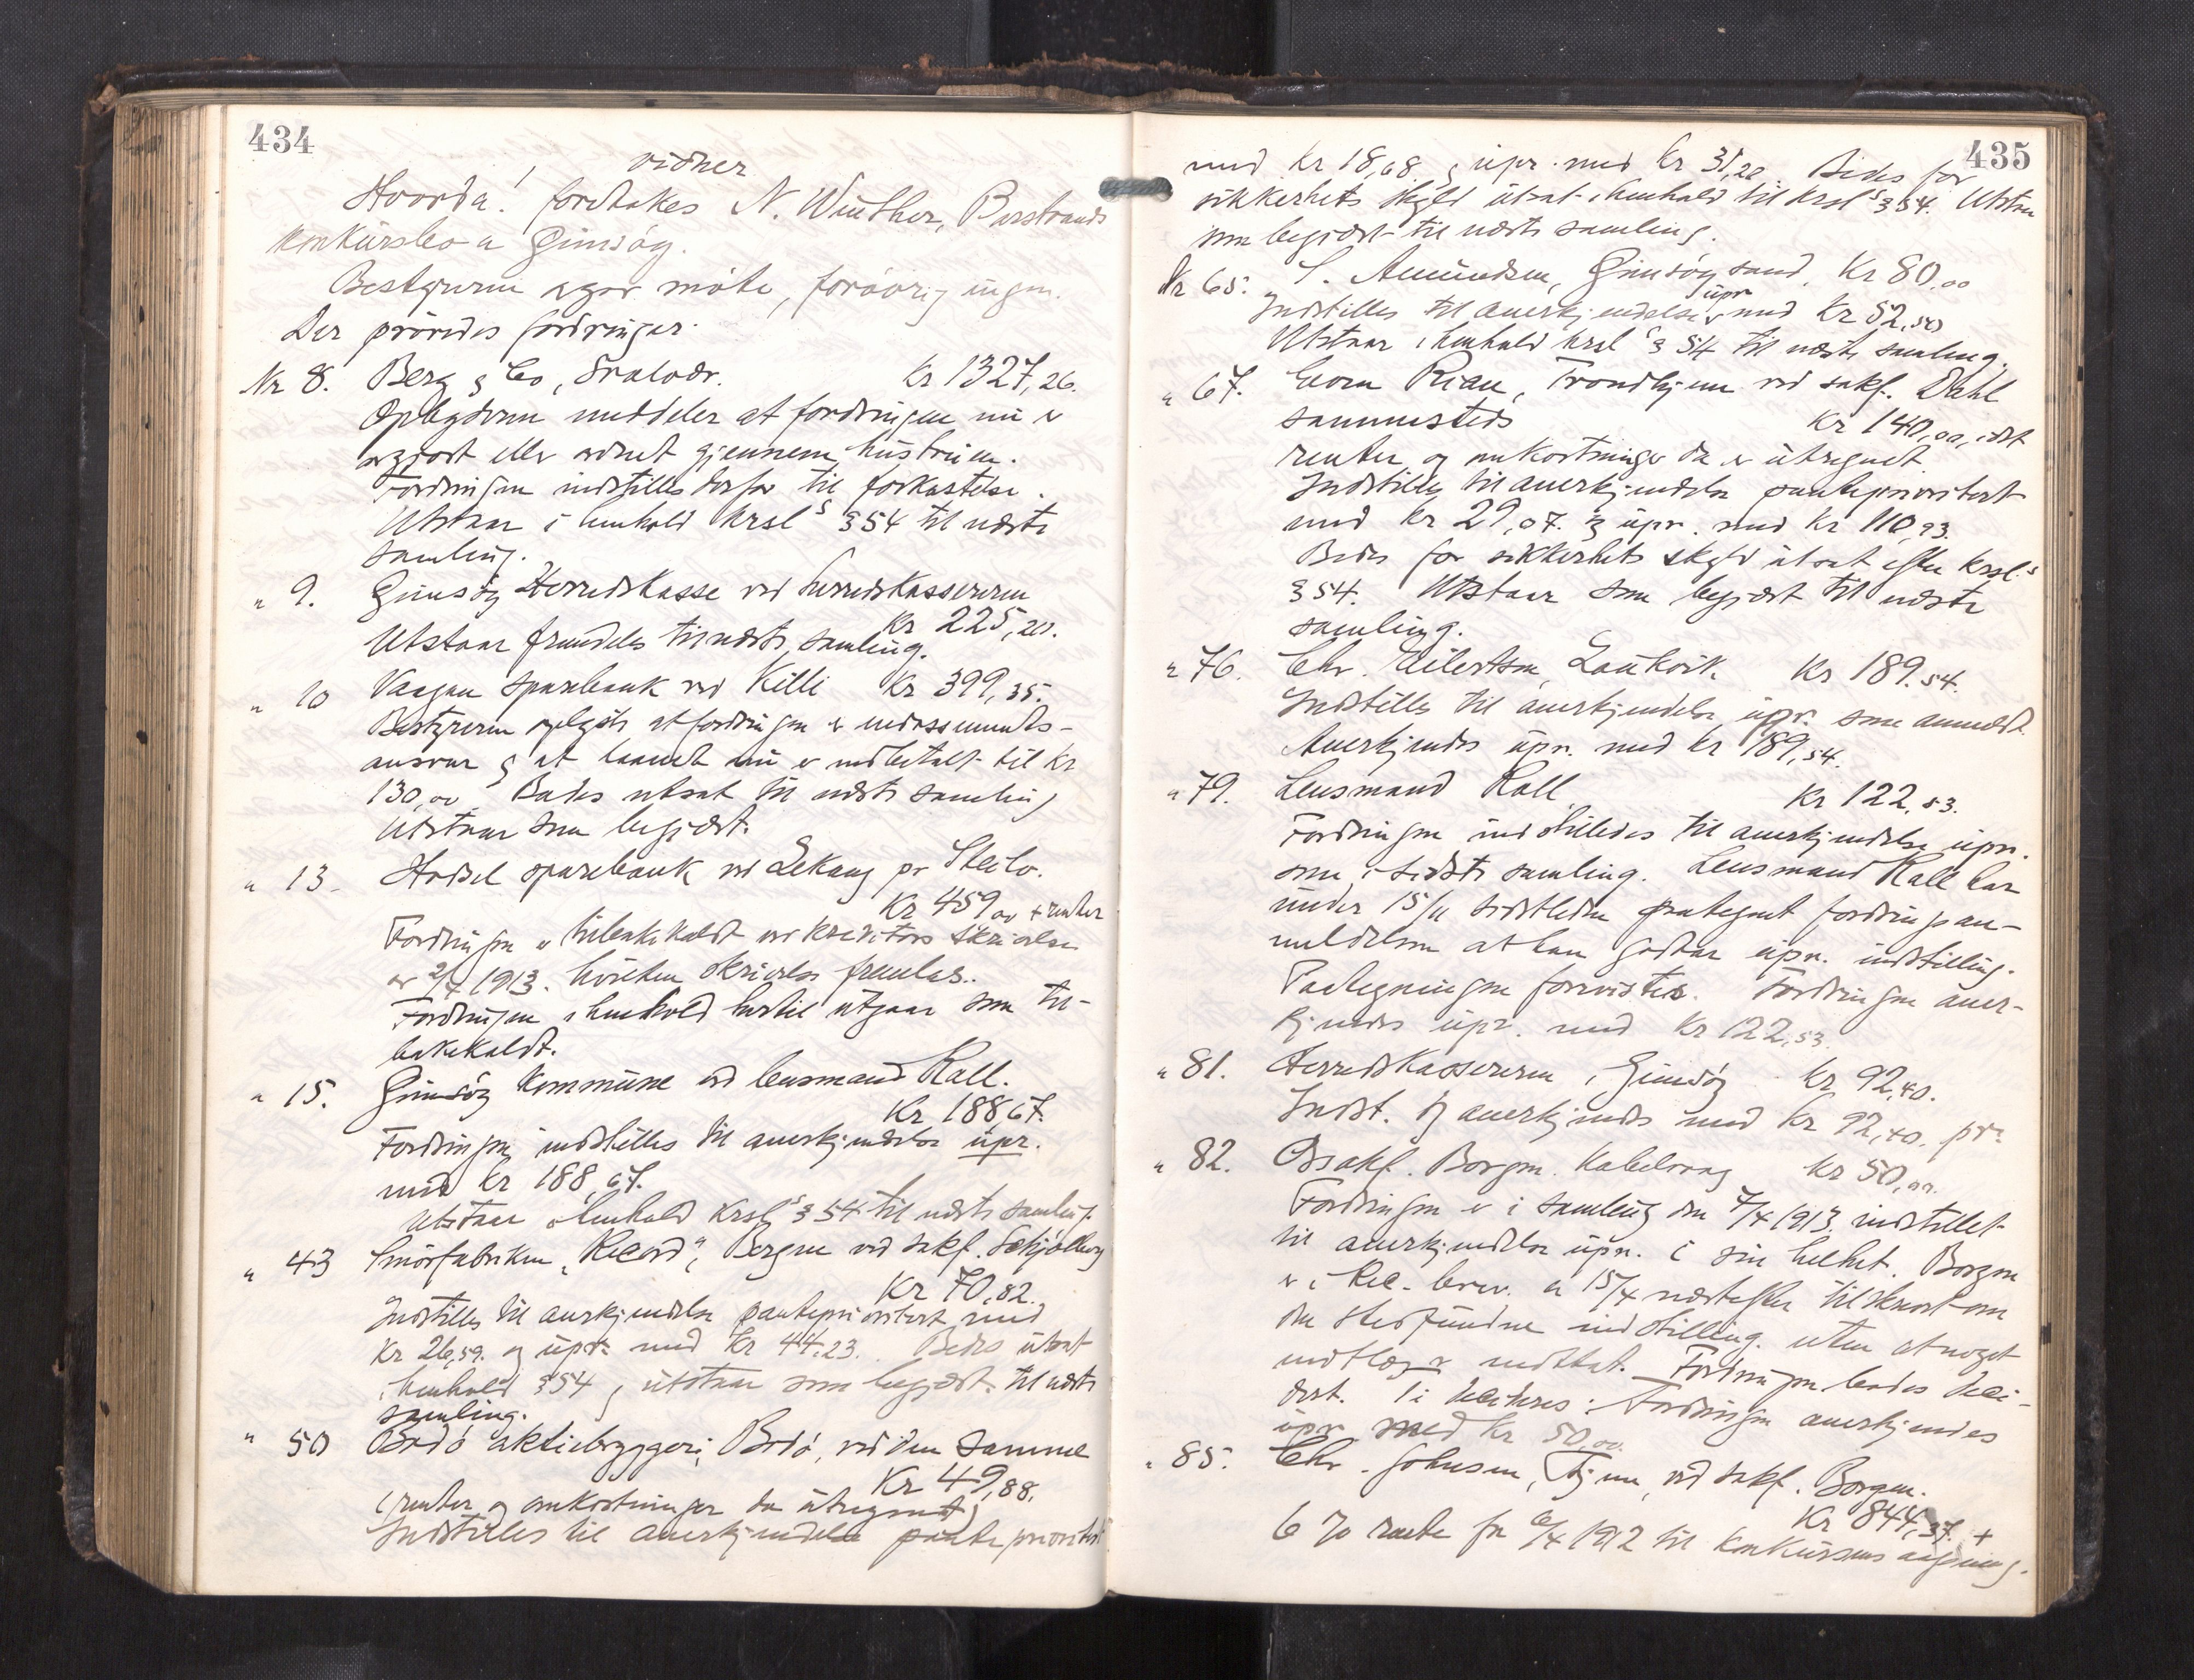 434
vidner
Hvorda! foretakes N. Winther, Barstrands
konkursbo a Gimsøy.
Bestyreren agar møte, forøvrig ingen.
Der prøvedes fordringer.
Nr 8. Berg & Co, Svolvær. Kr 1327,26.
Opbyderen meddeler at fordringen nu er
avgjort eller ordnet gjennem hustruen.
Fordringen indstilles derfor til forkastelse.
Utstaar i henhold krsl s § 54 til næste
samling.
" 9. Gimsøy Herredskasse ved herredskassereren
Kr 225,20.
Utstaar fremdeles til næste samling.
" 10 Vaagan sparebank ved Killi Kr 399,35.
Bestyreren oplyste at fordringen er indossements-
ansvar & at laanet nu er nedbetalt til kr
130,00. Bades utsat til næste samling
Utstaar som begjært.
" 13. Hadsel sparebank ved Lekang pr Steilo.
Kr 459,00 + renter
Fordringen er tilbakekaldt ved kreditors skrivelse
av 2/4 1913. hvilken skrivelse fremlas.
Fordringen i henhold hertil utgaar som til-
bakekaldt.
" 15. Gimsøy kommune ved lensmand Rall.
Kr 188,67.
Fordringen indstilles til anerkjendelse upr.
med kr 188,67.
Utstaar i henhold krsl s § 54 til næste samling.
" 43 Smørfabriken "Record", Bergen ved sakf. Schjølberg
Kr 70,82.
Indstilles til anerkjendelse panteprioritert med
Kr 26,59. og upr. med Kr 44.23. Bedes utsat
i henhold § 54 & utstaar som begjært til næste
samling.
" 50 Bodø aktiebryggeri, Bodø, ved den samme
Kr 49,88.
(renter og omkostninger da utregnet)
Indstilles til anerkjendelse panteprioritert
435
med kr 18,68. & upr. med kr 31,20. Bedes for
sikkerhets skyld utsat i henhold til krsl s § 54. Utstaar
som begjært til næste samling.
Nr 65. S. Amundsen, Gimsøysand, Kr 80,00
Indstilles til anerkjendelse upr med Kr 52,50
Utstaar i henhold krsl s § 54 til næste samling.
" 67. Rian, Trondhjem ved sakf. Dahl
sammesteds Kr 140,00, idet
renter og omkostninger da er utregnet
Indstilles til anerkjendelse panteprioritert
med kr 29,07. & upr. med kr 110,93.
Bedes for sikkerhets skyld utsat efter krsl.s
§ 54. Utstaar som begjært til næste
samling.
" 76. Chr. Eilertsen, Laukvik. Kr 189.54.
Indstilles til anerkjendelse upr. som anmeldt.
Anerkjendes upr. med kr 189,54.
" 79. Lensmand Rall Kr 122,53.
Fordringen indstilledes til anerkjendelse upr.
som i sidste samling. Lensmand Rall har
under 15/11 sidstleden paategnet fordringsan-
meldelsen at han godtar upr. indstilling.
Paategningen forevistes. Fordringen aner-
kjendes upr. med Kr 122,53.
" 81. Herredskassereren i Gimsøy Kr 92,40.
Indst. & anerkjendes med Kr 92,40. pr.
" 82. Borgen. Kabelvaag Kr 50,00.
Fordringen er i samling den 7/4 1913. indstillet
til anerkjendelse upr. i sin helhet. Borgen
er i Rec. brev. a 15/4 næstefter tilskrevet om
den stedfundne indstilling. uten at noget
indlæg er indkomt. Fordringen bedes deci-
dert. Ti decideres: Fordringen anerkjendes
upr med kr 50,00
" 85. Chr. Johnsen, ved sakf. Borgen.
Kr 844,37. +
6 % rente fra 6/4 1912 til konkursens aapning.